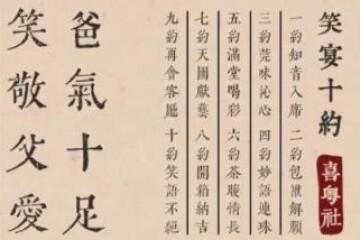 笑宴十約
喜粵社
一約知音入席 二約包袱解頤
三約莞味沁心 四約妙語連珠
五約滿堂喝彩 六約茶暖情長
七約天團獻藝 八約開箱納吉
九約再會客廳 十約笑語不絕
爸氣十足
笑敬父愛